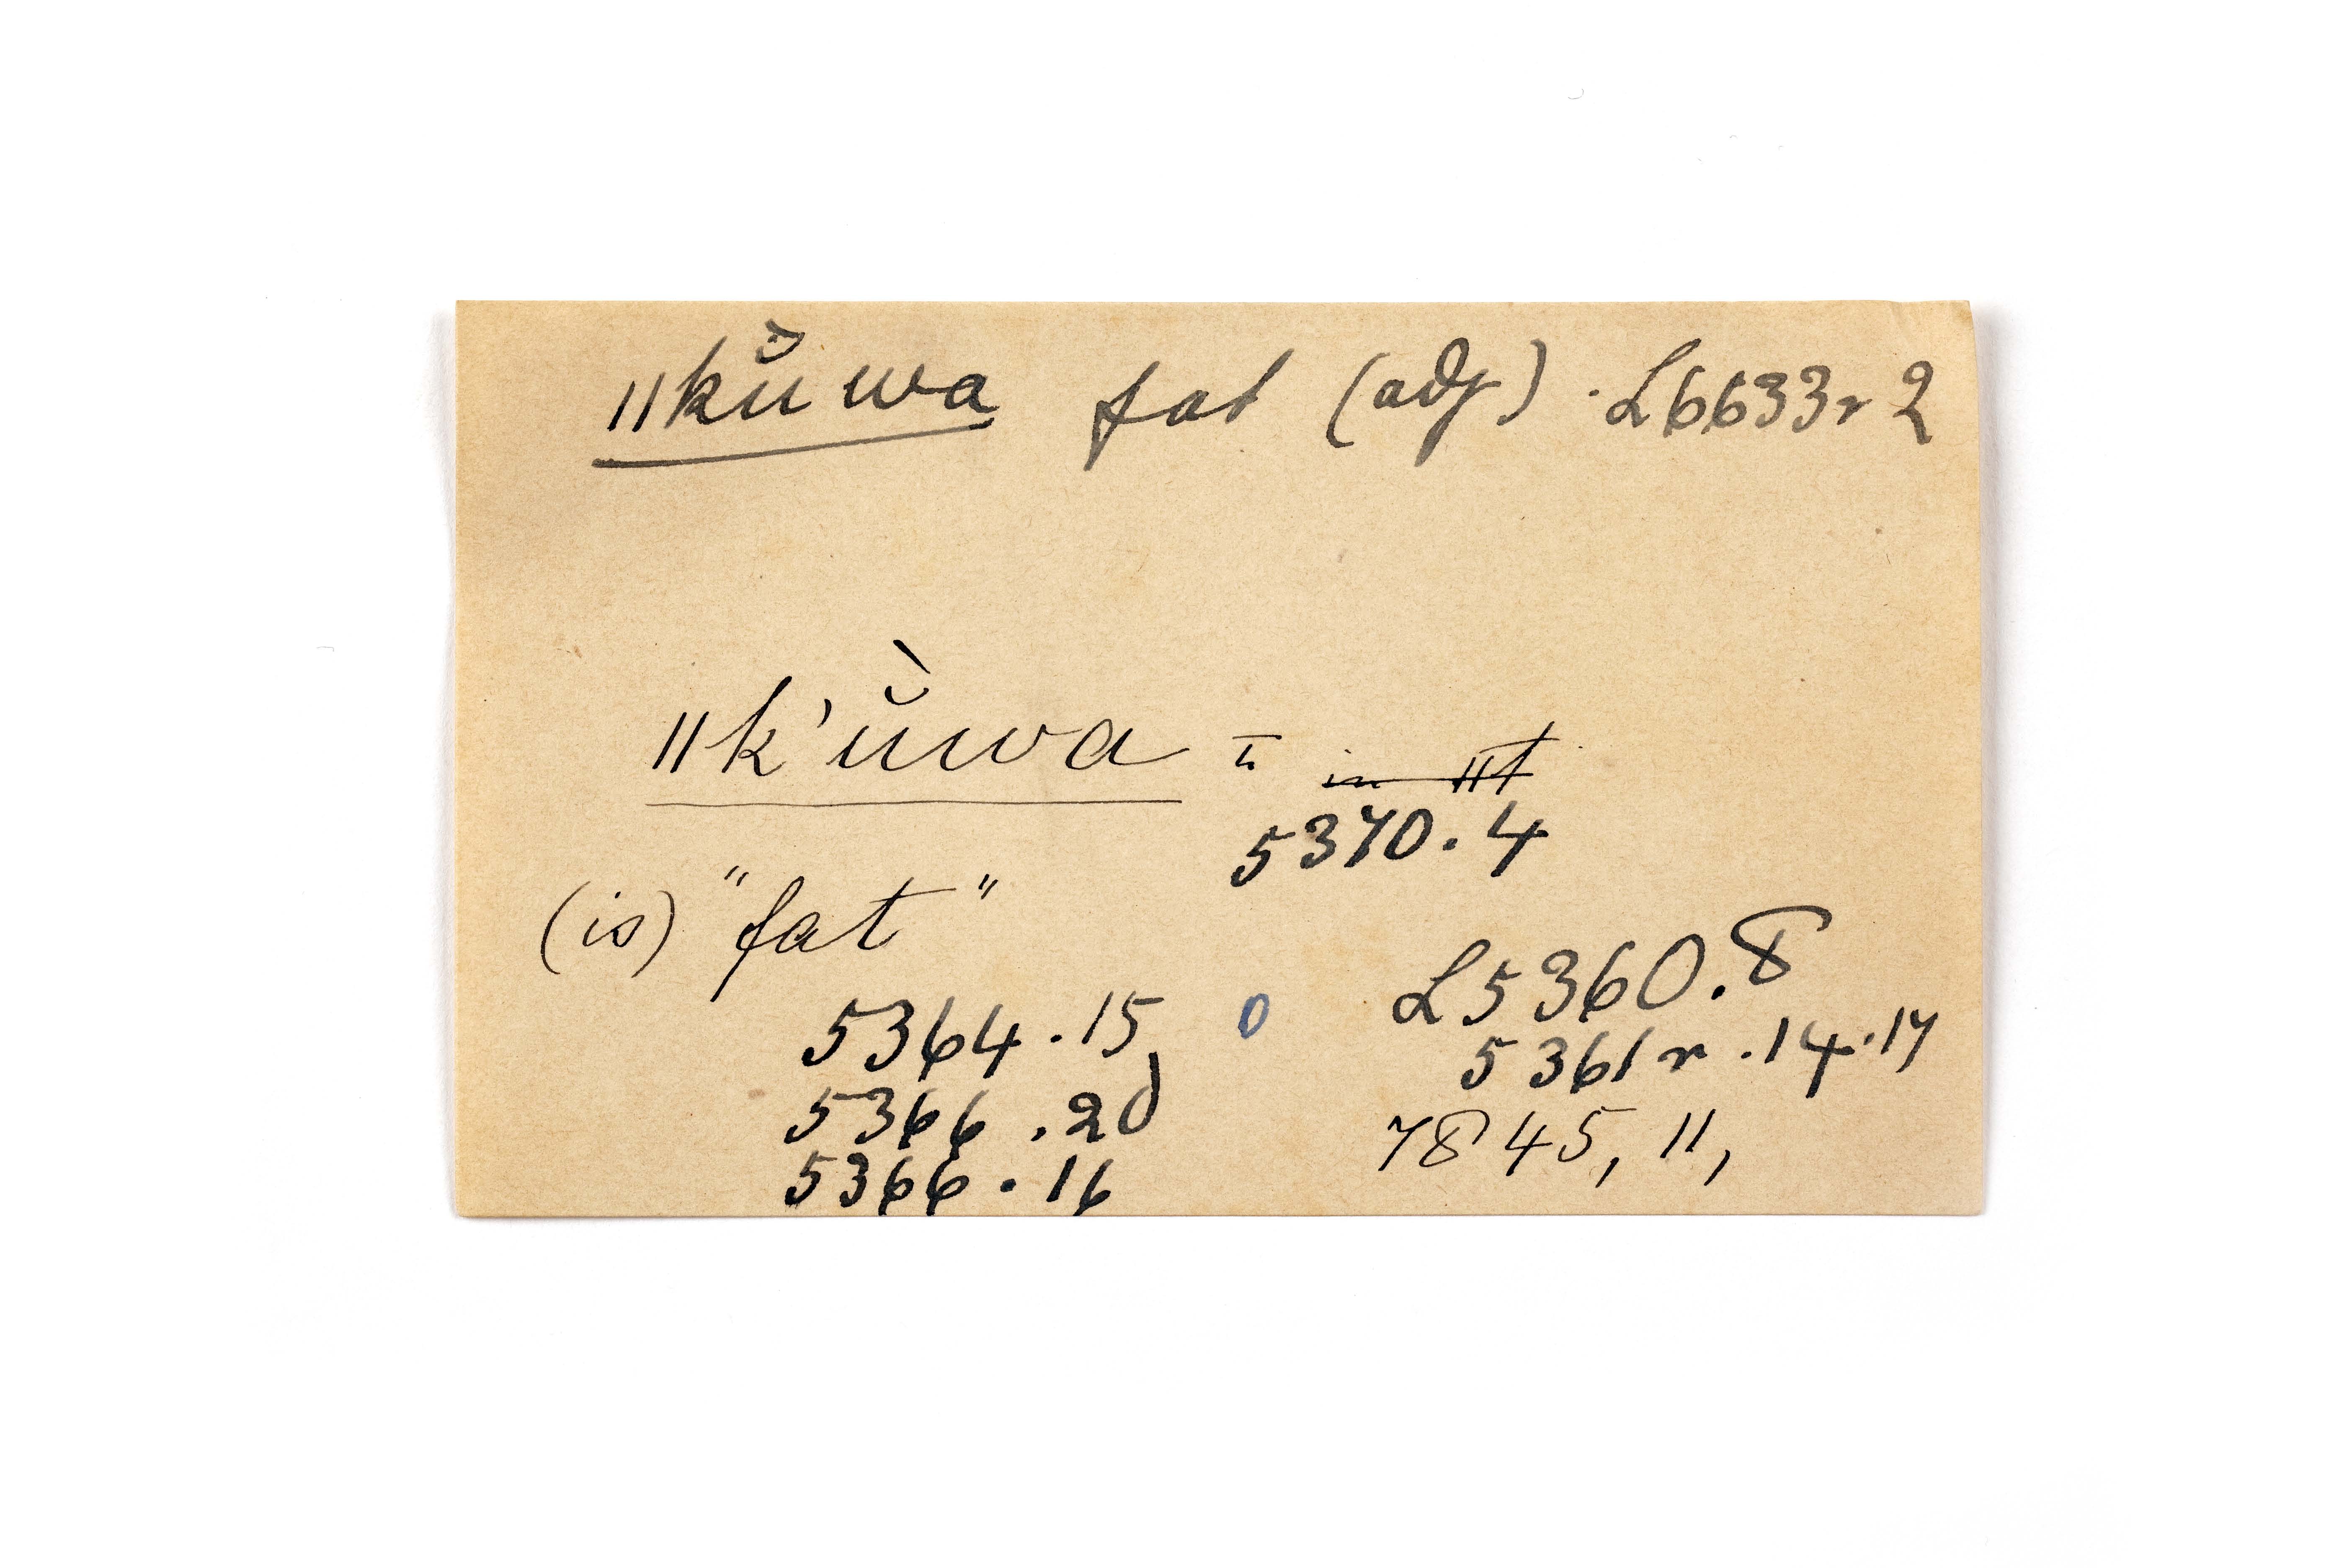 ǁkŭ̀wa fat (adj) . L6633r 2
ǁk'ŭ̀wa
5370.4
(is) "fat"
L5360.8
5364.15 0
5361r.14.17
5366.20
7845, 11,
5366.16